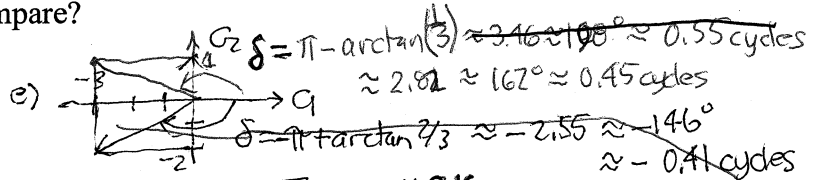 mpare?
C₂ δ = π - arctan(1/3) ≈ 3.46 ≈ 198° ≈ 0.55 cycles
≈ 2.82 ≈ 162° ≈ 0.45 cycles
e) -3 1 C₁
δ = -π + arctan 2/3 ≈ -2.55 ≈ -146°
-2 ≈ - 0.41 cycles